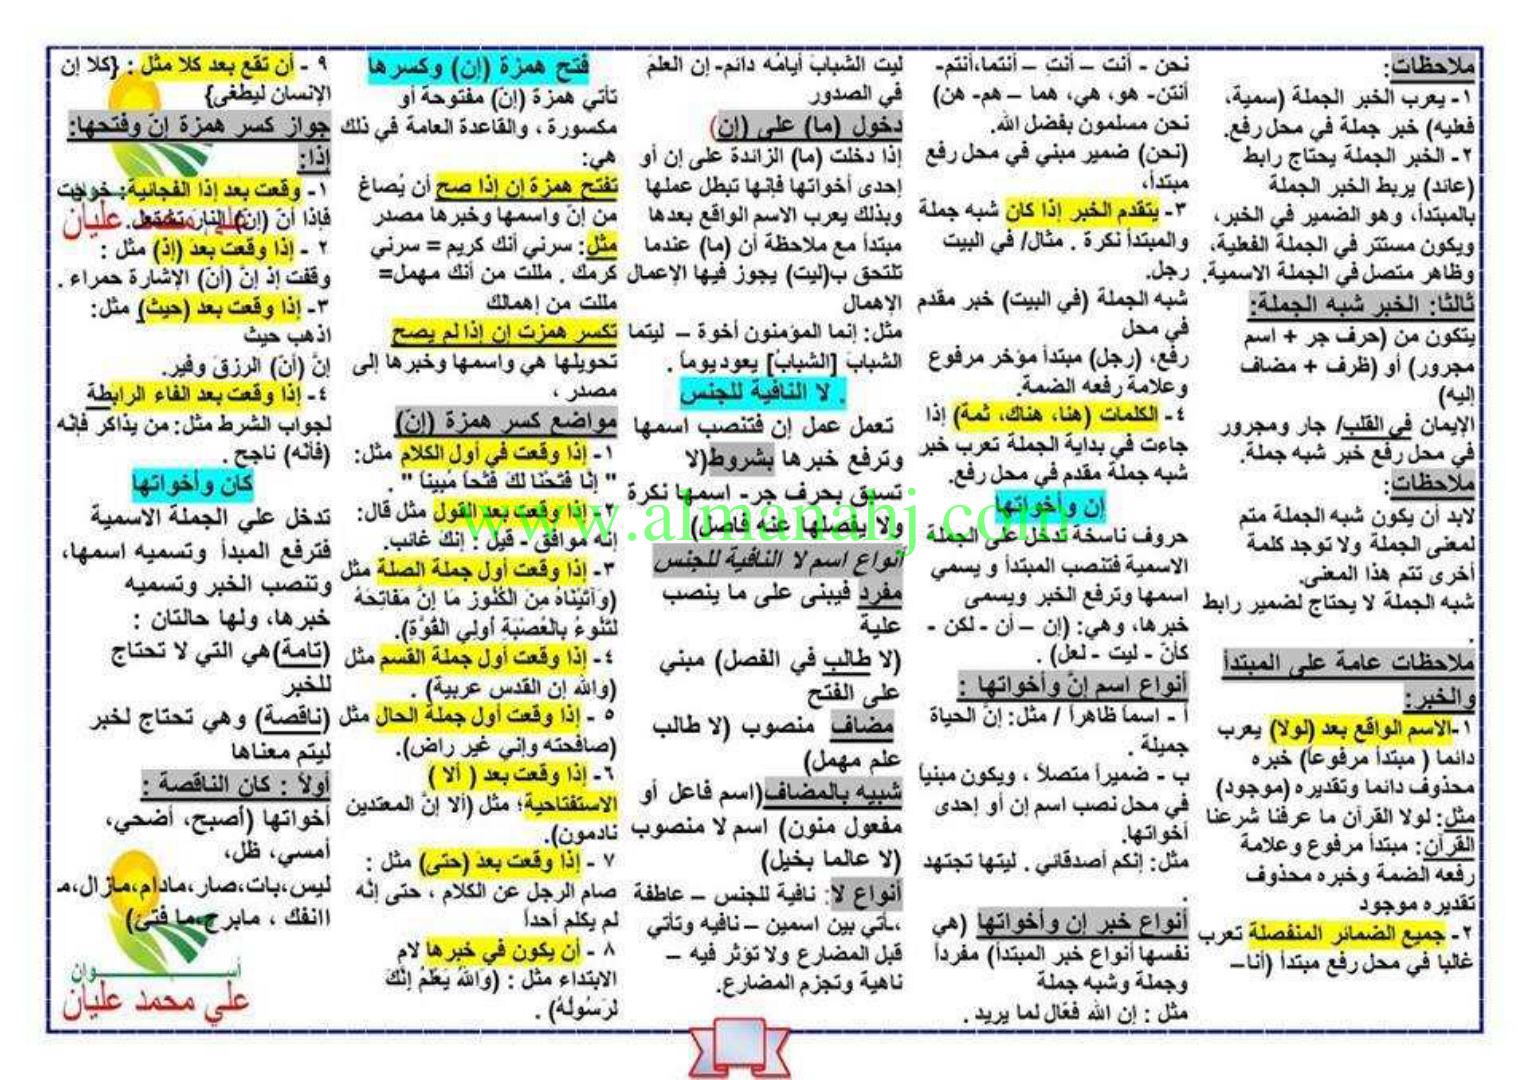 ملاحظات:
١- يعرب الخبر الجملة (سمية،
فعليه) خبر جملة في محل رفع.
٢- الخبر الجملة يحتاج رابط
(عائد) يربط الخبر الجملة
بالمبتدأ، وهو الضمير في الخبر،
ويكون مستتر في الجملة الفعلية،
وظاهر متصل في الجملة الاسمية.
ثالثا: الخبر شبه الجملة:
يتكون من (حرف جر + اسم
مجرور) أو (ظرف + مضاف
إليه)
الإيمان في القلب/ جار ومجرور
في محل رفع خبر شبه جملة.
ملاحظات:
لابد أن يكون شبه الجملة متم
لمعنى الجملة ولا توجد كلمة
أخرى تتم هذا المعنى.
شبه الجملة لا يحتاج لضمير رابط
.
ملاحظات عامة على المبتدأ
والخبر:
١-الاسم الواقع بعد (لولا) يعرب
دائما ( مبتدأ مرفوعاً) خبره
محذوف دائما وتقديره (موجود)
مثل: لولا القرآن ما عرفنا شرعنا
القرآن: مبتدأ مرفوع وعلامة
رفعه الضمة وخبره محذوف
تقديره موجود
٢- جميع الضمائر المنفصلة تعرب
غالبا في محل رفع مبتدأ (أنا–
نحن - أنت – أنتِ – أنتما،أنتم-
أنتن- هو، هي، هما – هم- هن)
نحن مسلمون بفضل الله.
(نحن) ضمير مبني في محل رفع
مبتدأ،
٣- يتقدم الخبر إذا كان شبه جملة
والمبتدأ نكرة . مثال/ في البيت
رجل.
شبه الجملة (في البيت) خبر مقدم
في محل
رفع، (رجل) مبتدأ مؤخر مرفوع
وعلامة رفعه الضمة.
٤- الكلمات (هنا، هناك، ثمة) إذا
جاءت في بداية الجملة تعرب خبر
شبه جملة مقدم في محل رفع.
إن وأخواتها
حروف ناسخة تدخل على الجملة
الاسمية فتنصب المبتدأ و يسمي
اسمها وترفع الخبر ويسمى
خبرها، وهي: (إن – أن - لكن -
كأنّ - ليت - لعل) .
أنواع اسم إنّ وأخواتها :
أ - اسماً ظاهراً / مثل: إنّ الحياة
جميلة .
ب - ضميراً متصلاً ، ويكون مبنياً
في محل نصب اسم إن أو إحدى
أخواتها.
مثل: إنكم أصدقائي . ليتها تجتهد
.
أنواع خبر إن وأخواتها (هي
نفسها أنواع خبر المبتدأ) مفرداً
وجملة وشبه جملة
مثل : إن الله فعّال لما يريد .
ليت الشبابَ أيامُه دائم- إن العلمَ
في الصدور
دخول (ما) على (إن)
إذا دخلت (ما) الزائدة على إن أو
إحدى أخواتها فإنها تبطل عملها
وبذلك يعرب الاسم الواقع بعدها
مبتدأ مع ملاحظة أن (ما) عندما
تلتحق ب(ليت) يجوز فيها الإعمال
الإهمال
مثل: إنما المؤمنون أخوة – ليتما
الشبابَ [الشبابُ] يعود يوماً .
. لا النافية للجنس
تعمل عمل إن فتنصب اسمها
وترفع خبرها بشروط(لا
تسبق بحرف جر- اسمها نكرة
ولا يفصلها عنه فاصل)
أنواع اسم لا النافية للجنس
مفرد فيبنى على ما ينصب
علية
(لا طالب في الفصل) مبني
على الفتح
مضاف منصوب (لا طالب
علم مهمل)
شبيه بالمضاف(اسم فاعل أو
مفعول منون) اسم لا منصوب
(لا عالما بخيل)
أنواع لا: نافية للجنس – عاطفة
،تأتي بين اسمين – نافيه وتأتي
قبل المضارع ولا تؤثر فيه –
ناهية وتجزم المضارع.
فتح همزة (إن) وكسرها
تأتي همزة (إنّ) مفتوحة أو
مكسورة ، والقاعدة العامة في ذلك
هي:
تفتح همزة إن إذا صح أن يُصاغ
من إنّ واسمها وخبرها مصدر
مثل: سرني أنك كريم = سرني
كرمك . مللت من أنك مهمل=
مللت من إهمالك
تكسر همزت إن إذا لم يصح
تحويلها هي واسمها وخبرها إلى
مصدر ،
مواضع كسر همزة (إنّ)
١- إذا وقعت في أول الكلام مثل:
" إنَّا فَتَحْنَا لكَ فَتْحاً مُبيناً " .
٢- إذا وقعت بعد القول مثل قال:
إنه موافق - قيل : إنك غائب.
٣- إذا وقعت أول جملة الصلة مثل
(وَآتَيْنَاهُ مِنَ الْكُنُوز مَا إنَّ مَفَاتِحَهُ
لتَنُوءُ بالْعُصْبَةِ أُولِي الْقُوَّةِ).
٤- إذا وقعت أول جملة القسم مثل
(والله إن القدس عربية) .
٥ - إذا وقعت أول جملة الحال مثل
(صافحته وإني غير راض).
٦- إذا وقعت بعد ( ألا )
الاستفتاحية؛ مثل (ألا إنّ المعتدين
نادمون).
٧ - إذا وقعت بعدَ (حتى) مثل :
صام الرجل عن الكلام ، حتى إنّه
لم يكلم أحداً
٨ - أن يكون في خبرها لام
الابتداء مثل : (وَاللهُ يَعْلَمُ إنَّكَ
لَرَسُولُهُ) .
٩ - أن تقع بعد كلا مثل : {كلا إن
الإنسان ليطغى}
جواز كسر همزة إنّ وفتحها:
إذا:
١- وقعت بعد إذا الفجائية: خرجت
فإذا أنّ (إنّ) النار تشتعل.
٢ - إذا وقعت بعدَ (إذ) مثل :
وقفت إذ إنّ (أنّ) الإشارة حمراء .
٣- إذا وقعت بعد (حيث) مثل:
اذهب حيث
إنَّ (أنّ) الرزقَ وفير.
٤- إذا وقعت بعد الفاء الرابطة
لجواب الشرط مثل: من يذاكر فإنّه
(فأنّه) ناجح .
كان وأخواتها
تدخل علي الجملة الاسمية
فترفع المبدأ وتسميه اسمها،
وتنصب الخبر وتسميه
خبرها، ولها حالتان :
(تامة)هي التي لا تحتاج
للخبر
(ناقصة) وهي تحتاج لخبر
ليتم معناها
أولاً : كان الناقصة :
أخواتها (أصبح، أضحي،
أمسي، ظل،
ليس،بات،صار،مادام،مازال،م
اانفك ، مابرح،ما فتئ)
أســـوان
علي محمد عليان
علي محمد عليان
www.almanahj.com